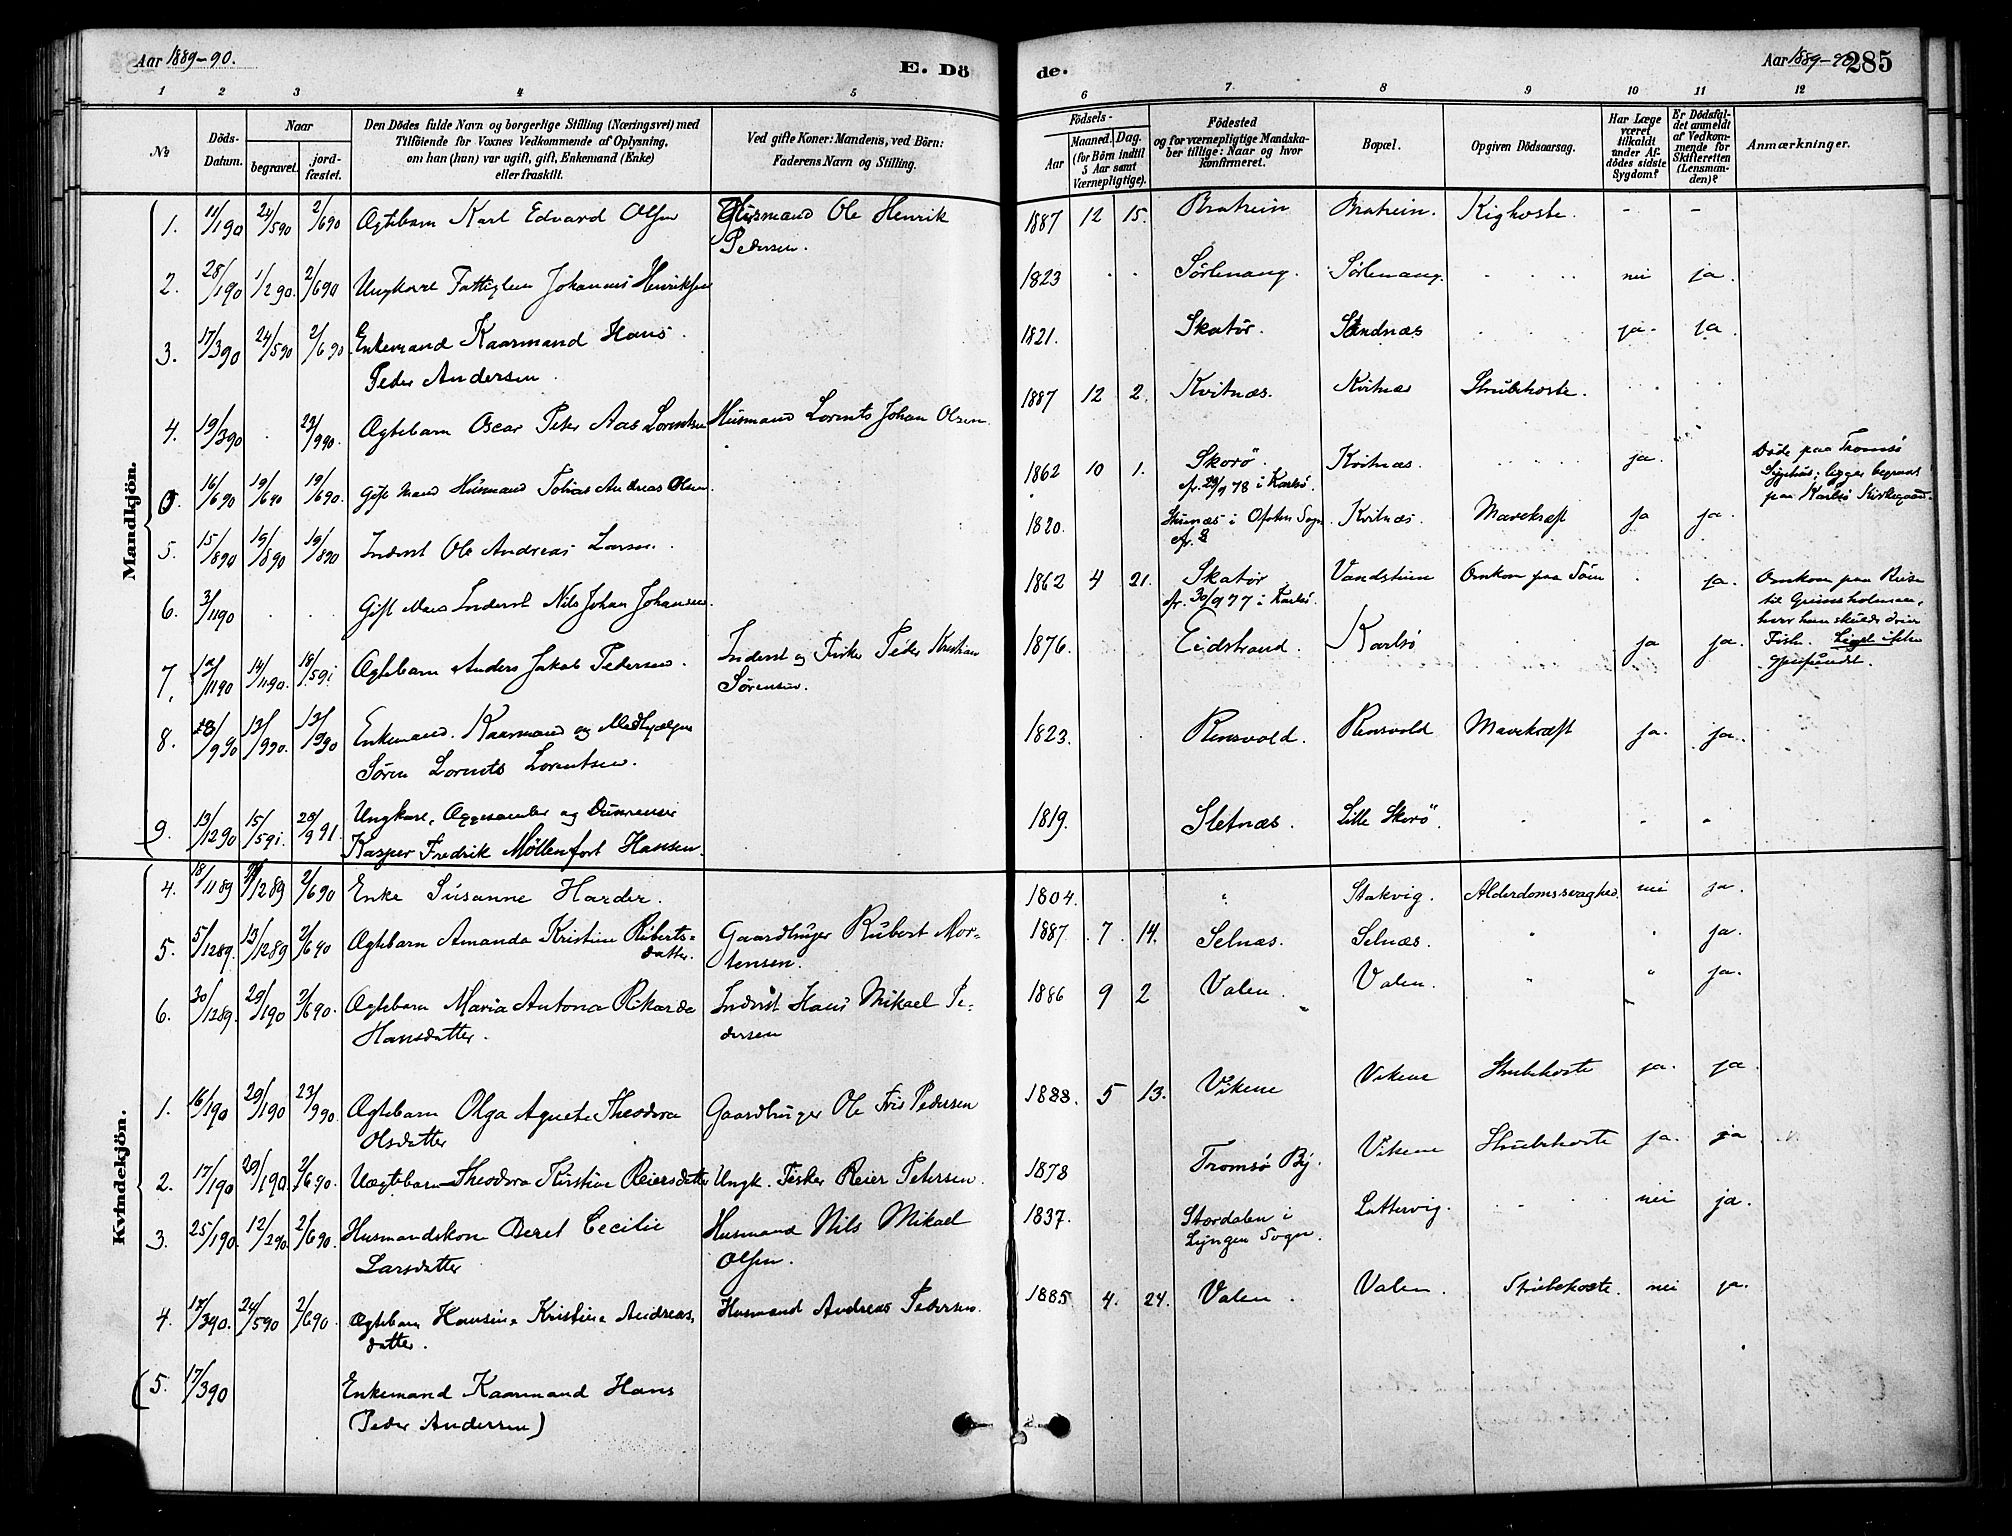 Aar 1889-90.
E. Dö
de.
Aar 1889-90
285
1 2 3 4 5 6 7. 8 9 10 11 12
№
Döds-
Datum.
Naar
begravet.
jord-
fæstet.
Den Dödes fulde Navn og borgerlige Stilling (Næringsvei) med
Tilföiende for Voxnes Vedkommende af Oplysning,
om han (hun) var ugift, gift, Enkemand (Enke)
eller fraskilt.
Ved gifte Koner: Mandens, ved Börn:
Faderens Navn og Stilling.
Födsels-
Aar
Maaned. Dag.
(for Börn indtil
5 Aar samt
Værnepligtige).
Födested
og for værnepligtige Mandska-
ber tillige: Naar og hvor
konfirmeret.
Bopæl.
Opgiven Dödsaarsag.
Har Læge
været
tilkaldt
under Af-
dödes sidste
Sygdom?
Er Dödsfal-
det anmeldt
af Vedkom-
mende for
Skifteretten
(Lensman-
den)?
Anmærkninger.
Mandkjön.
1. 11/1 90 24/5 90 2/6 90 Ægtebarn Karl Edvard Olsen Husmand Ole Henrik
Pedersen. 1887 12 15. Bratrein Bratrein. Kighoste. - -
2. 28/1 90 1/2 90. 2/6 90 Ungkarl Fattiglem Johannes Henriksen 1823 Sörlenang. Sörlenang. nei ja.
3. 17/3 90 24/5 90 2/6 90. Enkemand Kaarmand Hans
Peder Andersen. 1821. Skatör. Sandnæs ja. ja
4. 19/3 90 23/9 90. Ægtebarn Oscar Peter Aas Lorentsen Husmand Lorents Johan Olsen. 1887 12 2. Kvitnæs. Kvitnæs Strubehoste.
0. 16/6 90 19/6 90 19/6 90. Gift Mand Husmand Tobias Andreas Olsen 1862 10 1. Skorö.
cfr. 29/9 78 i Karlsö. Kvitnæs. ja. Döde paa Tromsö
Sygehus; ligger begravet
paa Karlsö Kirkegaard.
5. 15/8 90 19/8 90 19/8 90 Inderst Ole Andreas Larsen. 1820. i Ofoten Sogn Kvitnæs. Mavekræft ja ja.
6. 3/11 90 Gift Mand Inderst Nils Johan Johansen. 1862 4 21. Skatör
cfr. 30/9 77 i Karlsö. Vandstuen Omkom paa Söen ja. Omkom paa Reise
til Grimsholmen,
hvor han skulde drive
Fiske. Liget ikke
gjenfundet.
7. 12/11 90 14/11 90. 18/5 91 Ægtebarn Anders Jakob Pedersen. Inderst og Fisker Peder Kristian
Sörensen. 1876. Eidstrand. Karlsö ja ja.
8. 13/9 90 13/9 90. 13/9 90 Enkemand. Kaarmand og Medhjælper
Sören Lorents Lorentsen. 1823. Rensvold. Rensvold Mavekræft ja. ja.
9. 13/12 90 15/5 91. 28/9 91. Ungkarl, Æggesamler og
Kasper Fredrik Möllenfort Hansen. 1819. Sletnæs. Lille Skorö.
Kvindekjön.
4. 18/11 89 /12 89 2/6 90 Enke Susanne Harder. 1804. " Stakvig. Alderdomssvaghed. nei ja.
5. 5/12 89. 13/12 89 2/6 90 Ægtebarn Amanda Kristine Ruberts-
datter. Gaardbruger Rubert Mor-
tensen. 1887 7 14. Selnæs. Selnæs. " " ja.
6. 30/12 89. 29/1 90 2/6 90. Ægtebarn Maria Antona Rikarda
Hansdatter. Inderst Hans Mikael Pe-
dersen 1886 9 2 Valen. Valen. " " ja.
1. 16/1 90 29/1 90 23/9 90. Ægtebarn Olga Agnete Theodora
Olsdatter Gaardbruger Ole Fris Pedersen 1888. 5 13. Vikene Vikene Strubehoste ja. ja.
2. 17/1 90 29/1 90 2/6 90. Uægtebarn Theodora Kirstine Reiersdatter Ungk. Fisker Reier Petersen. 1878 Tromsö By. Vikene Strubehoste ja. ja
3. 25/1 90. 12/2 90. 2/6 90. Husmandskone Beret Cecilie
Larsdatter Husmand Nils Mikael
Olsen. 1837. Stordalen i
Lyngen Sogn. Lattervig. nei ja.
4. 17/3 90. 24/5 90 2/6 90 Ægtebarn Hansine Kristine Andreas-
datter. Husmand Andreas Pedersen. 1885 4. 24. Valen. Valen. Strubehoste. nei ja.
(5. 17/3 90 Enkemand Kaarmand Hans
Peder Andersen)